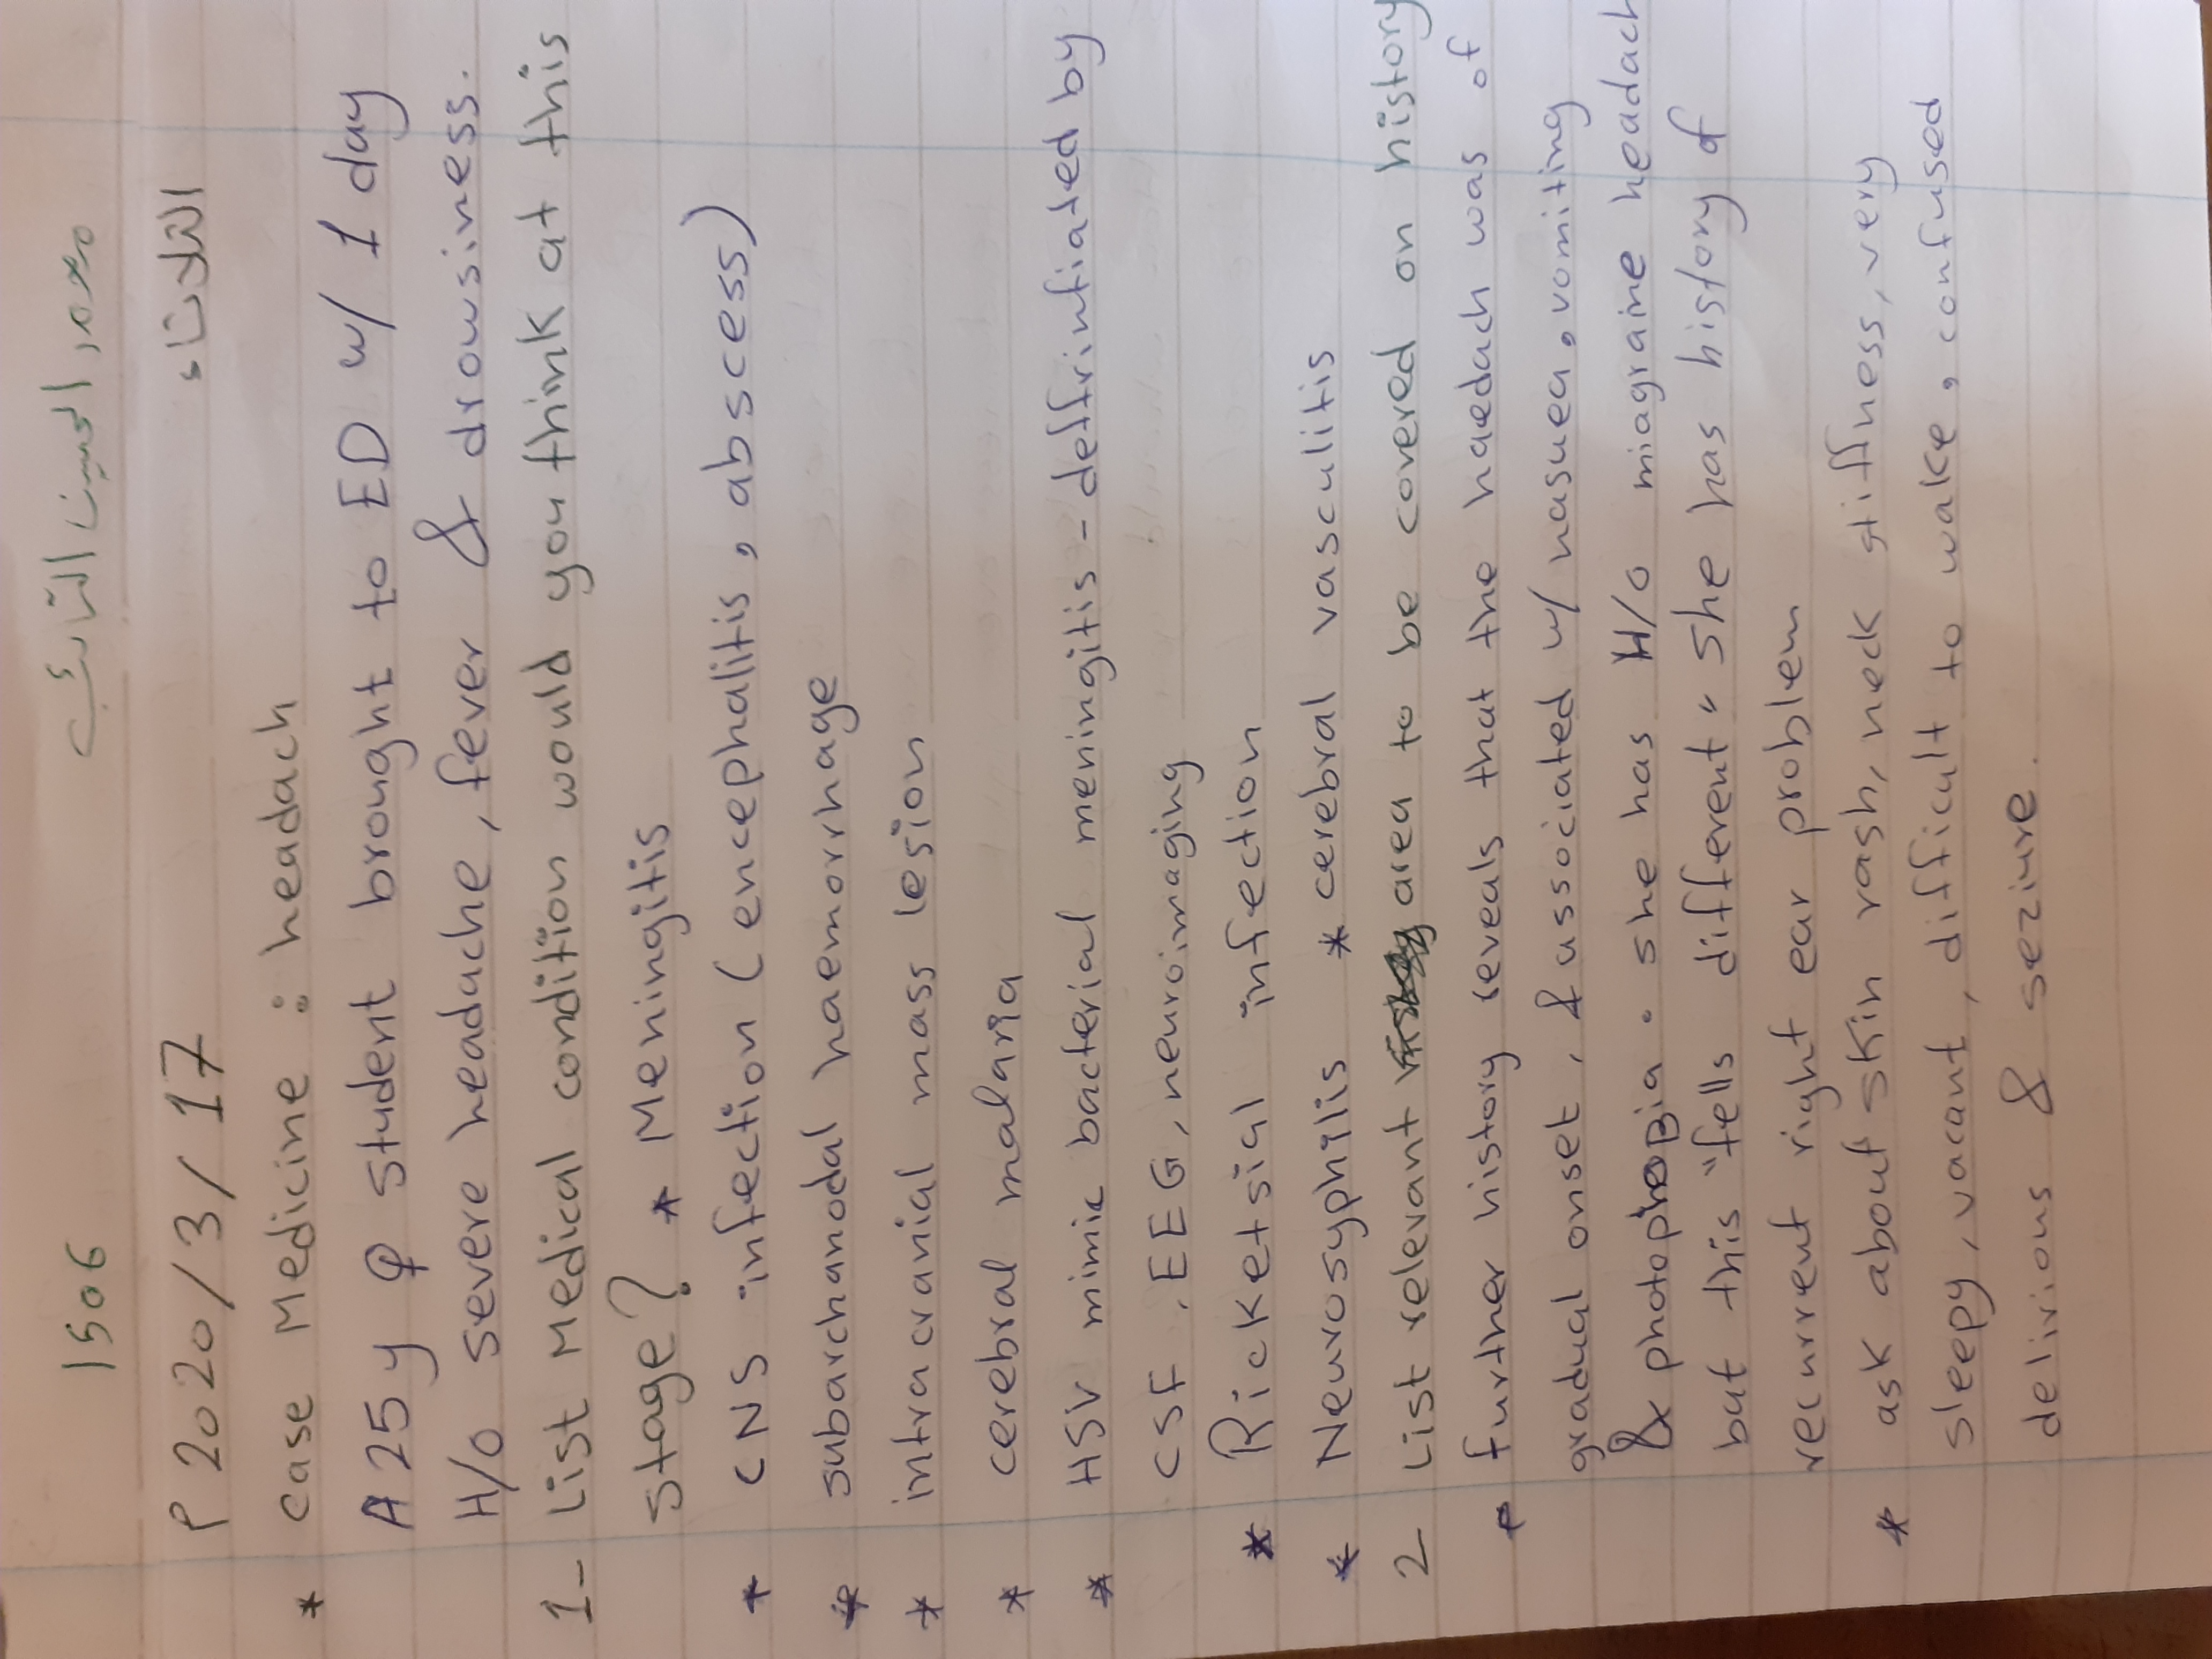 1506
P 2020/3/17 الثلاثاء
* case Medicine : headach
A 25 y ♀ student brought to ED w/ 1 day
H/o severe headache, fever & drowsiness.
1- List Medical condition would you think at this
stage? * Meningitis
* CNS infection (encephalitis, abscess)
* subarchanodal haemorrhage
* intracranial mass lesion
* cerebral malaria
* HSV mimic bacterial meningitis - deffrintiated by
CSF, EEG, neuroimaging
* Ricketsial infection
* Neurosyphilis * cerebral vasculitis
2 List relevant area to be covered on history
* further history reveals that the haedach was of
gradual onset, & associated w/ nasuea, vomiting
& photophoBia. she has H/o miagraine headach
but this "fells different" she has history of
recurrent right ear problem
* ask about skin rash, neck stiffness, very
sleepy, vacant, difficult to wake, confused
delirious & seziure.